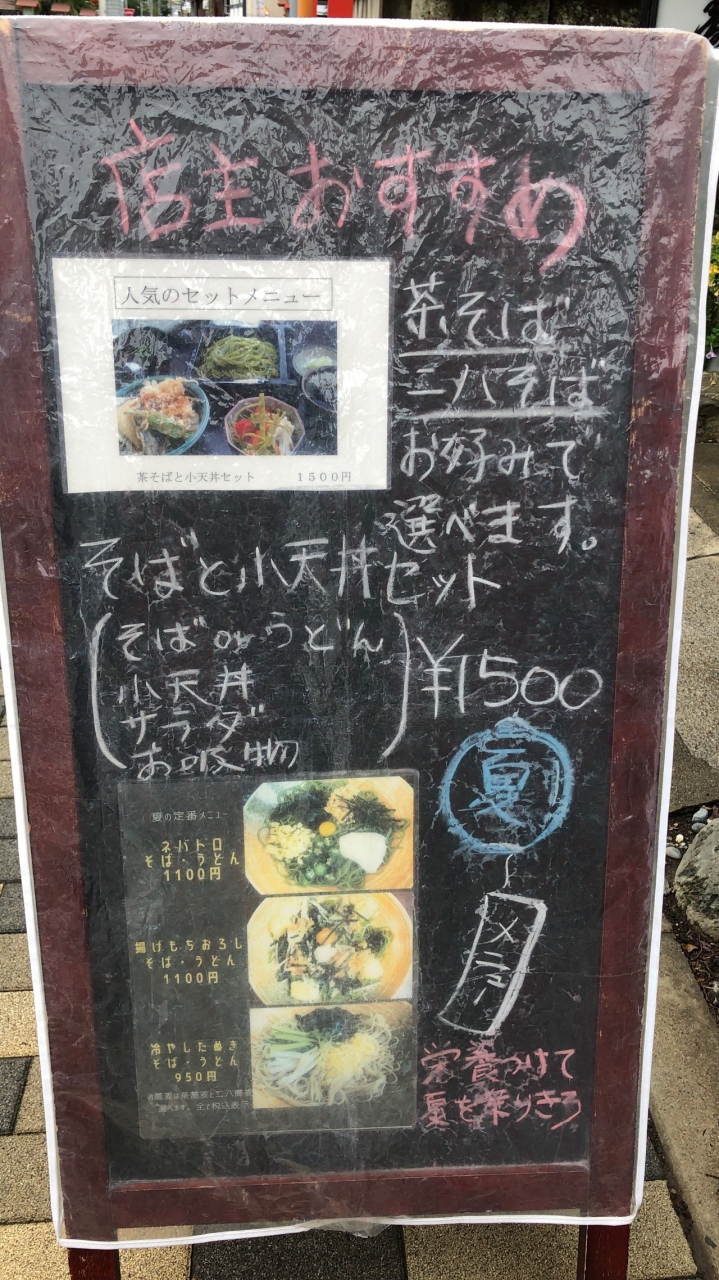 店主おすすめ
人気のセットメニュー
茶そばと小天丼セット 1500円
茶そば
二八そば
お好みで
選べます。
そばと小天丼セット
そばorうどん
小天丼
サラダ
お吸物
¥1500
夏
メニュー
夏の定番メニュー
ネバトロ
そば・うどん
1100円
揚げもちおろし
そば・うどん
1100円
冷やしたぬき
そば・うどん
950円
お蕎麦は茶蕎麦と二八蕎麦
選べます。全て税込表示
栄養つけて
夏を乗りきろう